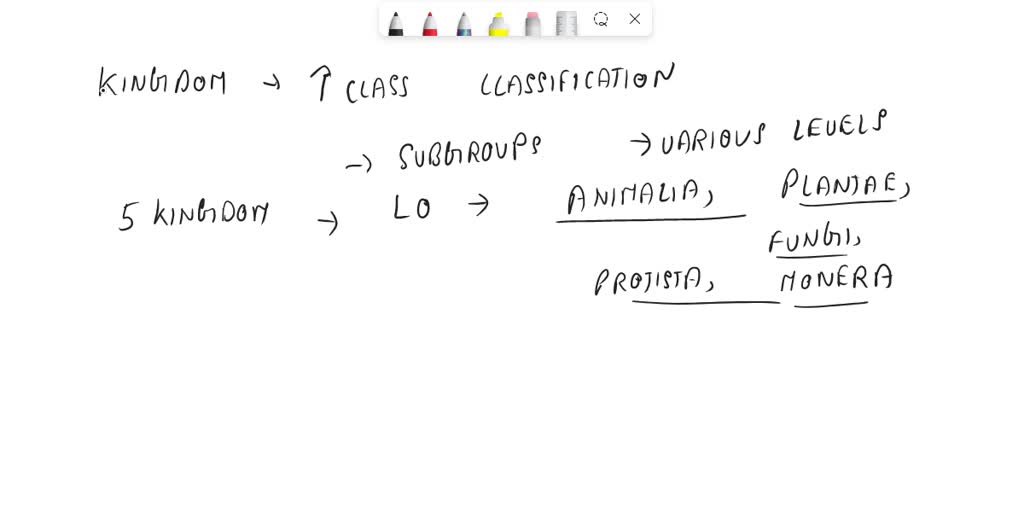 KINGDOM → ↑ CLASS CLASSIFICATION
→ SUBGROUPS → VARIOUS LEVELS
5 KINGDOM → LO → ANIMALIA, PLANTAE,
FUNGI,
PROTISTA, MONERA